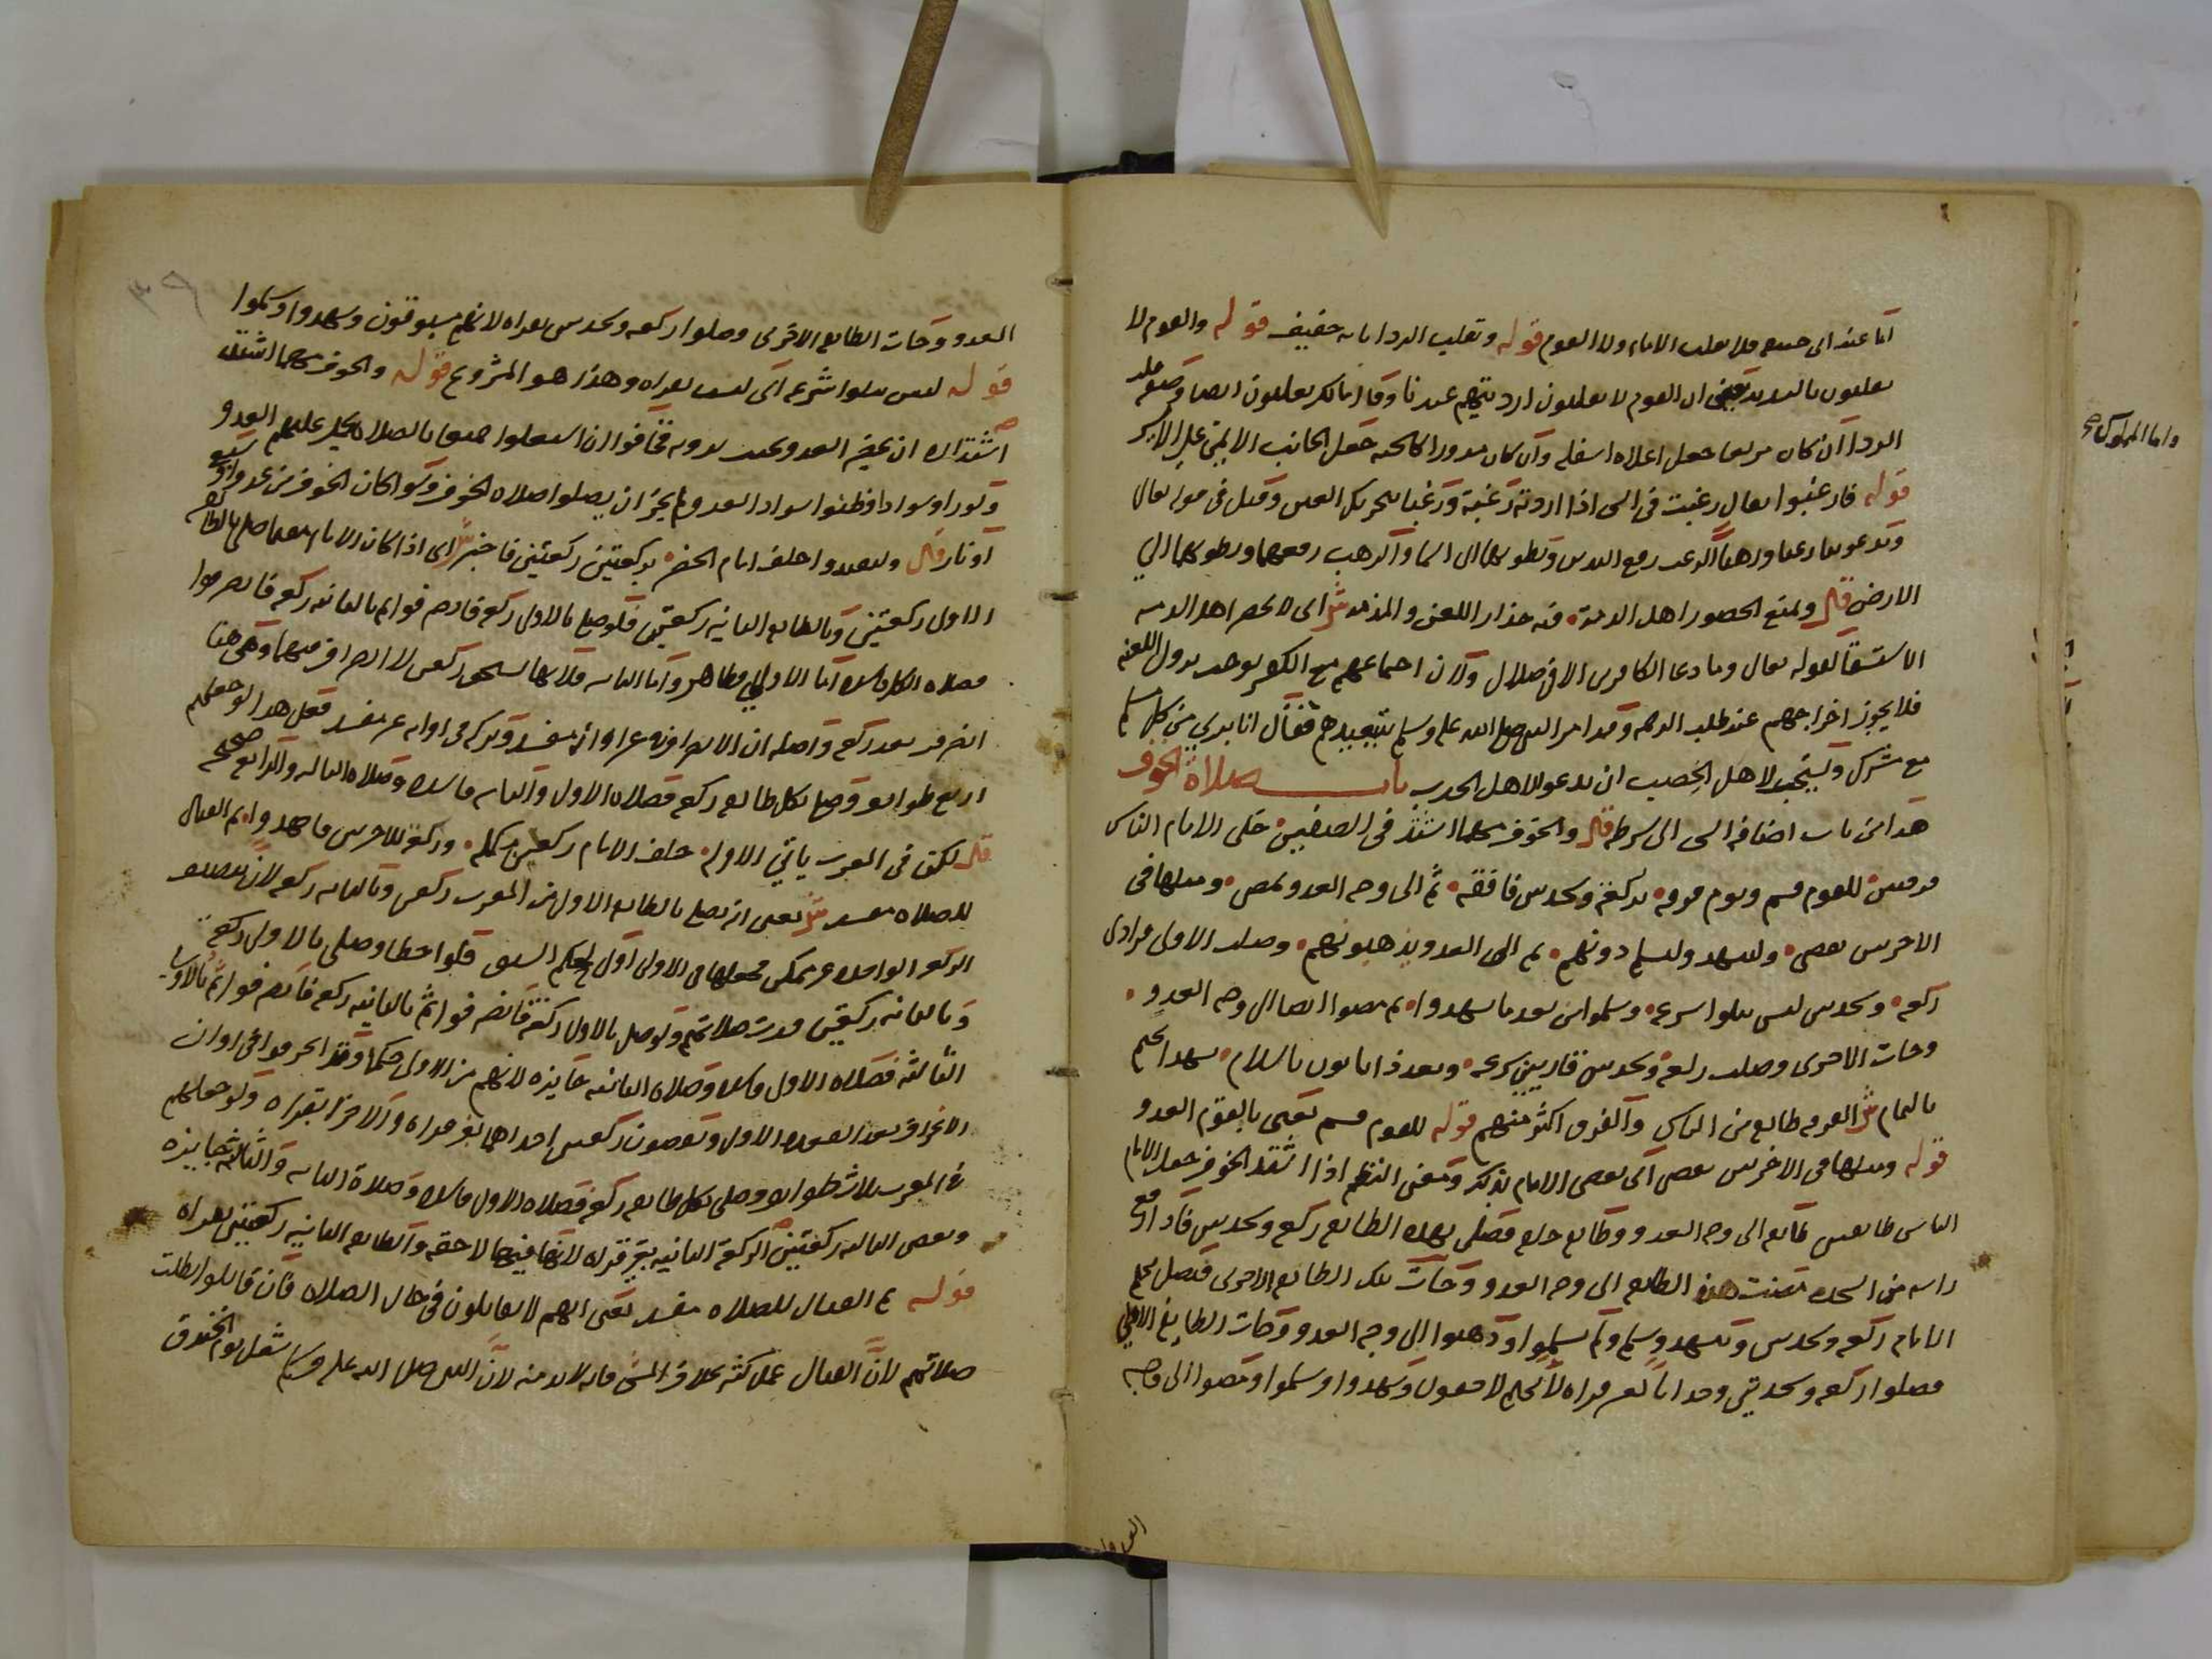 اما عند ابي حنيفه فلا يقلب الامام ولا القوم قوله وتقليب الردا بابه خفيف قوله والقوم لا
يقلبون بالتشديد يعني ان القوم لا يقلبون ارديتهم عندنا وقال مالك يقلبون ايضا وصفه قلب
الردا ان كان مربعا جعل اعلاه اسفله وان كان مدورا كالجبه جعل الجانب الايمن علي الايسر
قوله فارغبوا يقال رغبت في الشي اذا اردته رغبة ورغبا بتحريك الغين وقيل في قوله تعالي
ويدعوننا رغبا ورهبا الرغب رفع اليدين وبطونهما الي السما والرهب رفعهما وبطونهما الي
الارض قال ويمنع الحضور اهل الذمة فيه حذار اللعن والمذمه ش اي لا يحضر اهل الذمه
الاستسقا لقوله تعالي وما دعا الكافرين الا في ضلال ولان اجتماعهم مع الكفر يوجب نزول اللعنه
فلا يجوز اخراجهم عند طلب الرحمه وقد امر النبي صلي الله عليه وسلم بتبعيدهم فقال انا بري من كل مسلم
مع مشرك ويستحب لاهل الخصب ان يدعو لاهل الجدب باب صلاة الخوف
هذا من باب اضافه الشي الي شرطه قال والخوف مهما اشتد في الصفين خلي الامام الناس
فرقتين للقوم قسم ويوم فرقه بركعة وسجدتين فافقه ثم الي وجه العدو تمضي ومثلها في
الاخرين يقضي وليتشهد وليسلم دونهم ثم الي العدو يذهبونهم وصلت الاولي فرادي
ركعه وسجدتين ليس يتلوا شرعه وسلموا من بعد ما تشهدوا ثم مضوا ايضا الي وجه العدو
وجات الاخري وصلت ركعة وسجدتين قاريين شرعه وبعد ذا ياتون بالسلام تشهد الجميع
بالتمام ش الفرقه طايفه من الناس والفرق اكثر منهم قوله للقوم قسم يعني بالقوم العدو
قوله ومثلها في الاخرين يقضي اي يقضي الامام بذلك ومعني النظم اذا اشتد الخوف جعل الامام
الناس طايفتين طايفه الي وجه العدو وطايفه خلفه فصلي بهذه الطايفه ركعه وسجدتين فاذا رفع
راسه من السجده مضت هذه الطايفه الي وجه العدو وجات تلك الطايفه الاخري فيصلي بهم
الامام ركعه وسجدتين وتشهد وسلم ولم يسلموا وذهبوا الي وجه العدو وجات الطايفه الاولي
فصلوا ركعه وسجدتين وحدانا بغير قراه لانهم لاحقون وتشهدوا وسلموا ومضوا الي وجه
العدو وجات الطايفه الاخري وصلوا ركعه وسجدتين بقراه لانهم مسبوقون وتشهدوا وسلموا
قوله ليس يتلوا شرعه اي ليست بقراه وهذا هو المشروع قوله والخوف مهما اشتد
اشتداده ان يحضر العدو بحيث يرونه فخافوا ان اشتغلوا جميعا بالصلاه يحمل عليهم العدو
ولو راوا سوادا وظنوا سواد العدو لم يجز ان يصلوا صلاه الخوف وسوا كان الخوف من عدو او سبع
او نار قال وليقتدوا خلف امام الحضر بركعتين ركعتين فاختبر ش اي اذا كان الامام مقيما صلي بالطايفه
الاولي ركعتين وبالطايفه الثانيه ركعتين فلو صلي بالاولي ركعه فانصرفوا ثم بالثانيه ركعه فانصرفوا
فصلاه الكل فاسده اما الاولي فظاهر واما الثانيه فلانها تستحق ركعتين لا انصراف بينهما وهي هنا
انصرفت بعد ركعه واصله ان الانصراف في غير اوانه مفسد وتركه في اوانه غير مفسد فعلي هذا لو جعلهم
اربع طوايف وصلي بكل طايفه ركعه فصلاه الاولي والثانيه فاسده وصلاه الثالثه والرابعه صحيحه
قال لكن في المغرب ياتي الاوله خلف الامام ركعتين مكمله وركعة للاخرين فاجهدوا ثم القتال
للصلاه مفسد ش يعني ان يصلي بالطايفه الاولي من المغرب ركعتين وبالثانيه ركعه لان تنصيف
الركعه الواحده غير ممكن فجعلها في الاولي اولي بحكم السبق فلو اخطا وصلي بالاولي ركعة
وبالثانيه ركعتين فسدت صلاتهم ولو صلي بالاولي ركعة فانصرفوا ثم بالثانيه ركعه فانصرفوا ثم بالاولي
الثالثه فصلاه الاولي فاسده وصلاه الثانيه جايزه لانهم من الاولي حكما وقد انحرفوا في اوان
الانحراف بعد القعده الاولي ويقضون ركعتين احداهما بغير قراه والاخري بقراه ولو جعلهم
في المغرب ثلاث طوايف وصلي بكل طايفه ركعة فصلاه الاولي فاسده وصلاة الثانيه والثالثه جايزه
ويقضي الثانيه ركعتين الركعة الثانيه بغير قراه لانها فيها لاحقه والطايفه الثانيه ركعتين بقراه
قوله ثم القتال للصلاه مفسد يعني انهم لا يقاتلون في حال الصلاه فان قاتلوا بطلت
صلاتهم لان القتال عمل كثير بخلاف المشي فانه لا بد منه لان النبي صلي الله عليه وسلم شغل يوم الخندق
٣٩